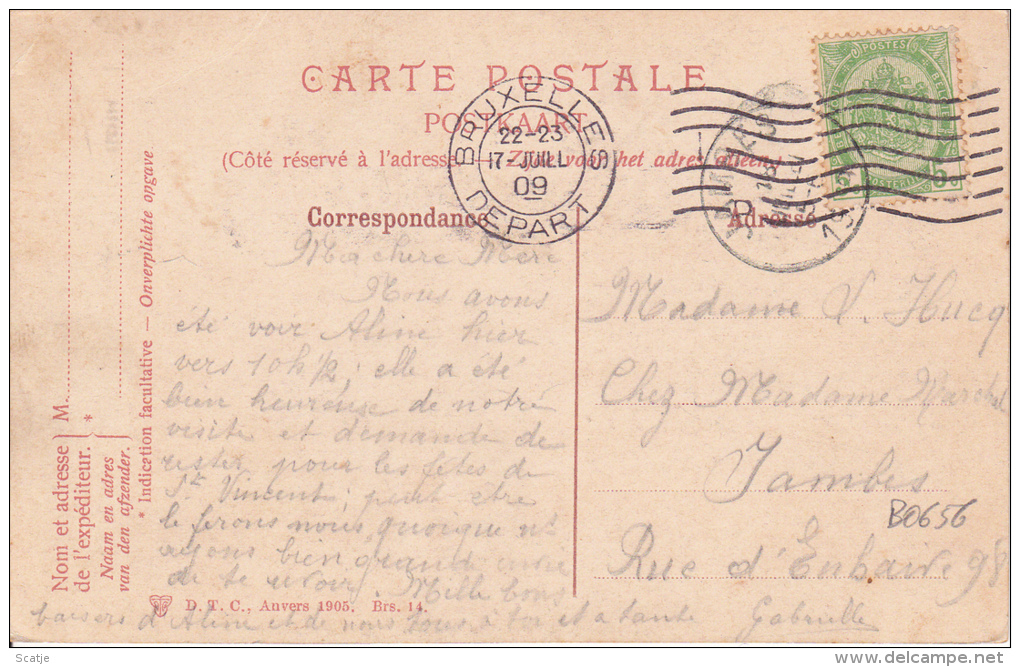 CARTE POSTALE
POSTKAART
(Côté réservé à l'adresse — Zijde voor het adres alleen)
Correspondance
Adresse
BRUXELLES
22-23
17-JUILL
09
DEPART
JAMBES
POSTES
5c
Nom et adresse
de l'expéditeur.
M
*
Naam en adres
van den afzender.
* Indication facultative — Onverplichte opgave
Ma chere Mere
Nous avons
été voir Aline hier
vers 10h 1/2; elle a été
bien heureuse de notre
visite et demande de
rester pour les fêtes de
St Vincent; peut être
le ferons nous, quoique n's
ayons bien grande envie
de te revoir. Mille bons
baisers d'Aline et de nous tous, à toi et a tante
Gabrielle
Madame V. Hucq
Chez Madame
Jambes
Rue d'Enhaive 98
B0656
D. T. C., Anvers 1905. Brs. 14.
Scatje
delcampe.net